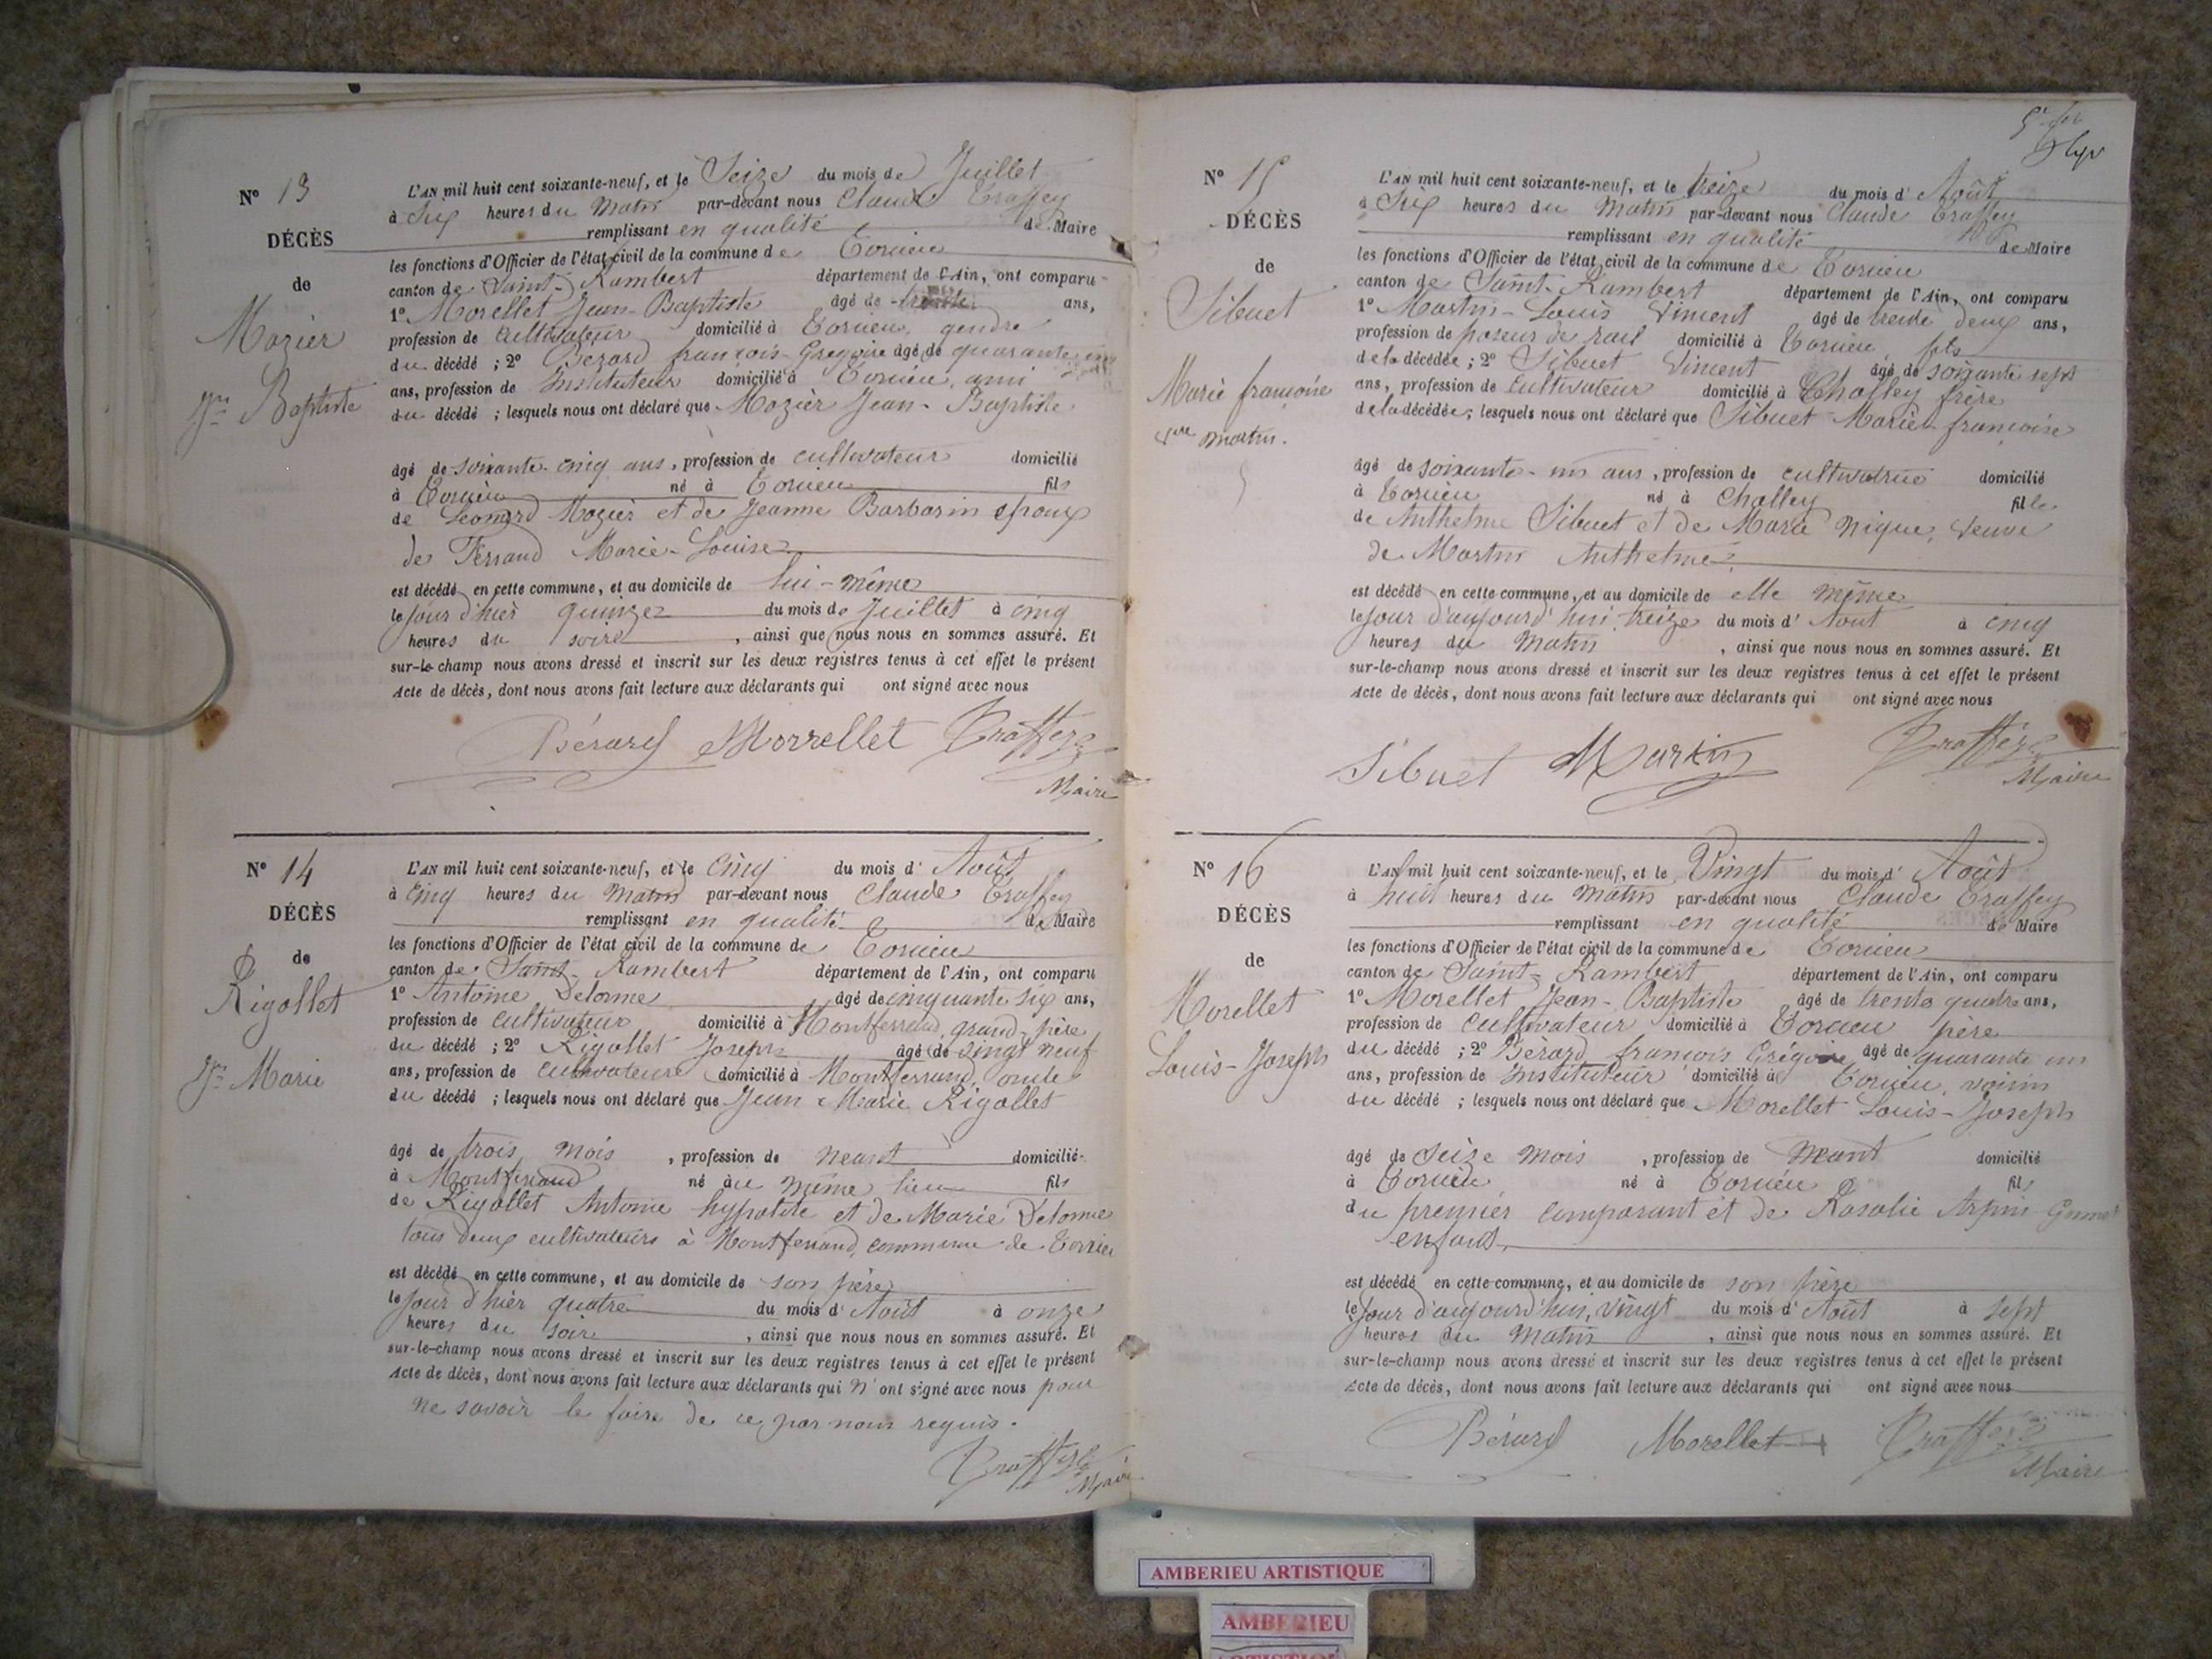 N° 13
DÉCÈS
de
Mozier
Jean Baptiste
L'AN mil huit cent soixante-neuf, et le Seize du mois de Juillet
à Six heures du Matin par-devant nous Claude Traffey
remplissant en qualité de Maire
les fonctions d'Officier de l'état civil de la commune de Torcieu
canton de Saint-Rambert département de l'Ain, ont comparu
1° Morellet Jean-Baptiste âgé de trente ans,
profession de Cultivateur domicilié à Torcieu, gendre
du décédé ; 2° Bérard françois-Grégoire âgé de quarante un
ans, profession de Instituteur domicilié à Torcieu, ami
du décédé ; lesquels nous ont déclaré que Mozier Jean-Baptiste
âgé de soixante-cinq ans, profession de cultivateur domicilié
à Torcieu né à Torcieu fils
de Léonard Mozier et de Jeanne Barbarin époux
de Ferrand Marie-Louise
est décédé en cette commune, et au domicile de lui-même
le jour d'hier quinze du mois de Juillet à cinq
heures du soir , ainsi que nous nous en sommes assuré. Et
sur-le-champ nous avons dressé et inscrit sur les deux registres tenus à cet effet le présent
Acte de décès, dont nous avons fait lecture aux déclarants qui ont signé avec nous
Bérard Morrellet Traffey
Maire
N° 14
DÉCÈS
de
Rigollet
Jn Marie
L'AN mil huit cent soixante-neuf, et le cinq du mois d' Août
à cinq heures du Matin par-devant nous Claude Traffey
remplissant en qualité de Maire
les fonctions d'Officier de l'état civil de la commune de Torcieu
canton de Saint-Rambert département de l'Ain, ont comparu
1° Antoine Delorme âgé de cinquante six ans,
profession de cultivateur domicilié à Montferrand, grand-père
du décédé ; 2° Rigollet Joseph âgé de vingt neuf
ans, profession de cultivateur domicilié à Montferrand, oncle
du décédé ; lesquels nous ont déclaré que Jean Marie Rigollet
âgé de trois mois , profession de neant domicilié
à Montferrand né au même lieu fils
de Rigollet Antoine hypolite et de Marie Delorme
tous deux cultivateurs à Montferrand, commune de Torcieu
est décédé en cette commune, et au domicile de son père
le jour d'hier quatre du mois d' Août à onze
heures du soir , ainsi que nous nous en sommes assuré. Et
sur-le-champ nous avons dressé et inscrit sur les deux registres tenus à cet effet le présent
Acte de décès, dont nous avons fait lecture aux déclarants qui n'ont signé avec nous pour
ne savoir le faire de ce par nous requis.
Traffey
Maire
N° 15
DÉCÈS
de
Sibuet
Marie françoise
Vve Martin.
L'AN mil huit cent soixante-neuf, et le treize du mois d' Août
à Six heures du Matin par-devant nous Claude Traffey
remplissant en qualité de Maire
les fonctions d'Officier de l'état civil de la commune de Torcieu
canton de Saint-Rambert département de l'Ain, ont comparu
1° Martin-Louis Vincent âgé de trente deux ans,
profession de poseur de rail domicilié à Torcieu fils
de la décédée ; 2° Sibuet Vincent âgé de soixante sept
ans, profession de Cultivateur domicilié à Challey frère
de la décédée ; lesquels nous ont déclaré que Sibuet Marie françoise
âgé de soixante-un ans , profession de cultivatrice domicilié
à Torcieu né à Challey fille
de Anthelme Sibuet et de Marie Nique, Veuve
de Martin Anthelme
est décédé en cette commune, et au domicile de elle même
le jour d'aujourd'hui, treize du mois d' Aout à cinq
heures du Matin , ainsi que nous nous en sommes assuré. Et
sur-le-champ nous avons dressé et inscrit sur les deux registres tenus à cet effet le présent
Acte de décès, dont nous avons fait lecture aux déclarants qui ont signé avec nous
Sibuet Martin Traffey
Maire
N° 16
DÉCÈS
de
Morellet
Louis-Joseph
L'AN mil huit cent soixante-neuf, et le Vingt du mois d' Août
à huit heures du Matin par-devant nous Claude Traffey
remplissant en qualité de Maire
les fonctions d'Officier de l'état civil de la commune de Torcieu
canton de Saint-Rambert département de l'Ain, ont comparu
1° Morellet Jean-Baptiste âgé de trente quatre ans,
profession de Cultivateur domicilié à Torcieu père
du décédé ; 2° Bérard françois Grégoire âgé de quarante un
ans, profession de Instituteur domicilié à Torcieu, voisin
du décédé ; lesquels nous ont déclaré que Morellet Louis-Joseph
âgé de Seize mois , profession de neant domicilié
à Torcieu né à Torcieu fils
du premier comparant et de Rosalie Arpin
enfant
est décédé en cette commune, et au domicile de son père
le jour d'aujourd'hui, vingt du mois d' Août à sept
heures du Matin , ainsi que nous nous en sommes assuré. Et
sur-le-champ nous avons dressé et inscrit sur les deux registres tenus à cet effet le présent
Acte de décès, dont nous avons fait lecture aux déclarants qui ont signé avec nous
Bérard Morellet Traffey
Maire
AMBERIEU ARTISTIQUE
AMBERIEU
ARTISTIQUE